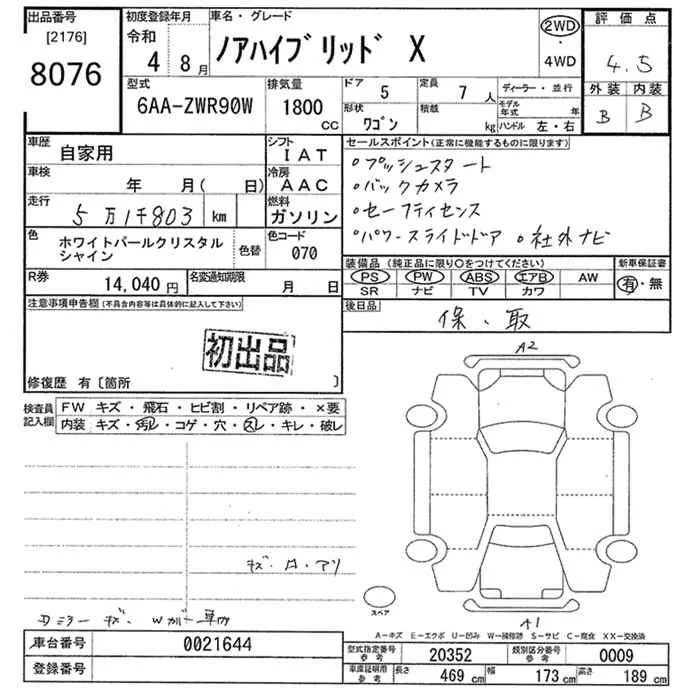 出品番号
[2176]
8076
初度登録年月
令和
4 8月
車名・グレード
ノアハイブリッド X
2WD
・
4WD
評価点
4.5
外装 内装
B B
型式
6AA-ZWR90W
排気量
1800
CC
ドア 5
定員 7 人
形状 ワゴン
積載 kg
ディーラー・並行
モデル年式 年
ハンドル 左・右
車歴 自家用
シフト IAT
車検 年 月( 日)
冷房 AAC
走行 5万1千803 km
燃料 ガソリン
色 ホワイトパールクリスタルシャイン
色替
色コード 070
R券 14,040 円
名変通知期限 月 日
セールスポイント(正常に機能するものに限ります)
○プッシュスタート
○バックカメラ
○セーフティセンス
○パワースライドドア ○社外ナビ
装備品(純正品に限り○をつけてください)
PS PW ABS エアB AW
SR ナビ TV カワ
新車保証書
有・無
後日品
保、取
注意事項申告欄(不具合内容等は具体的に記入して下さい)
初出品
修復歴 有〔箇所 〕
検査員記入欄
FW キズ・飛石・ヒビ割・リペア跡・×要
内装 キズ・汚レ・コゲ・穴・スレ・キレ・破レ
A2
キズ・凹・アリ
Dミラーキズ Wガード車内
スペア
A1
A-キズ E-エクボ U-凹み W-補修跡 S-サビ C-腐食 XX-交換済
車台番号 0021644
登録番号
型式指定番号 参考 20352
類別区分番号 参考 0009
車庫証明用 参考 長さ 469 cm 幅 173 cm 高さ 189 cm